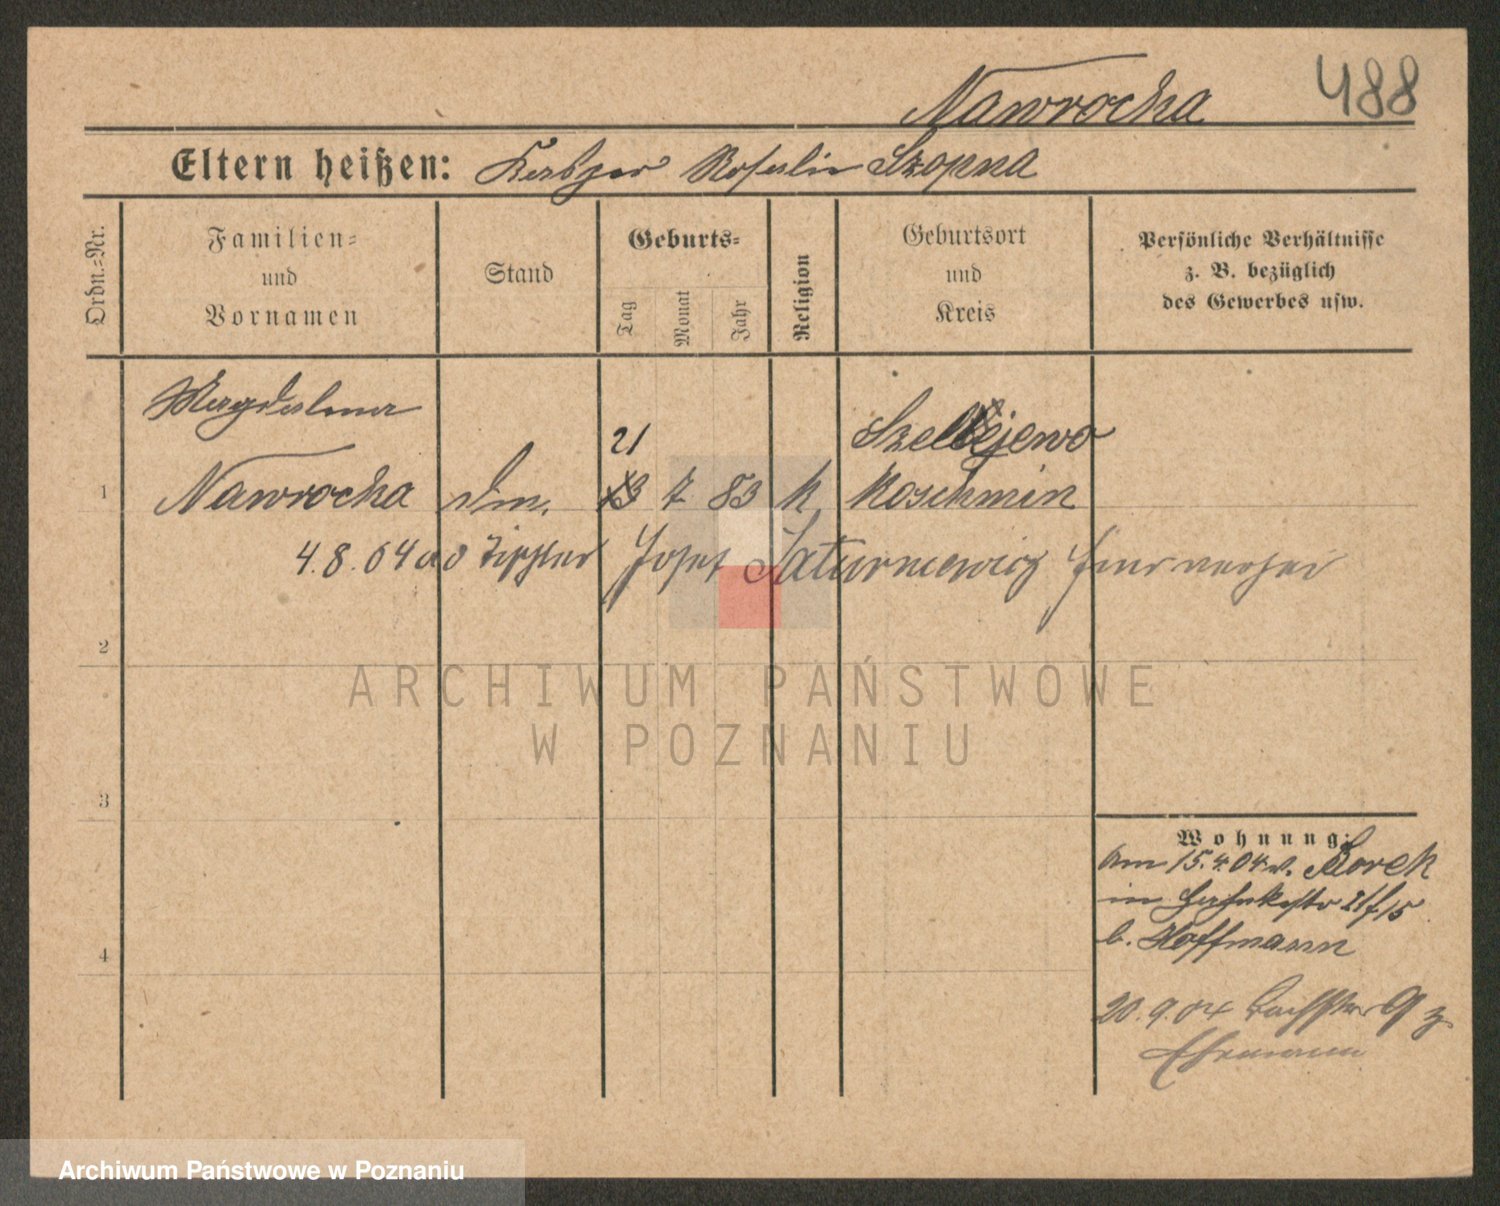 488
Nawrocka
Eltern heißen: Kasper Rosalie Szopna
Ordn.=Nr.
Familien=
und
Vornamen
Stand
Geburts=
Tag
Monat
Jahr
Religion
Geburtsort
und
Kreis
Persönliche Verhältnisse
z. B. bezüglich
des Gewerbes usw.
Magdalena
21
Szelejewo
1
Nawrocka
13 7 83 k
Koschmin
4.8.04 Tischler Josef Saturnewicz
2
3
4
Wohnung:
am 15.4.04 v. Borek
in 21/15
b. Hoffmann
20.9.04 9 z
Ehemann
ARCHIWUM PAŃSTWOWE
W POZNANIU
Archiwum Państwowe w Poznaniu